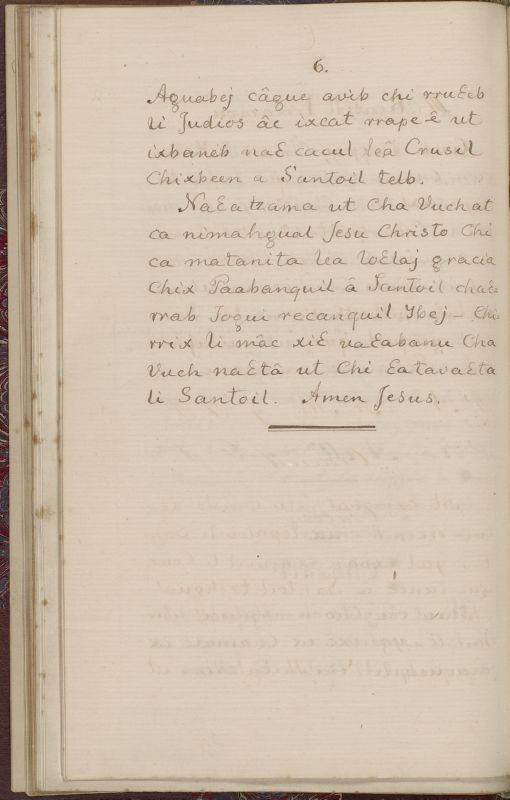 6.
Aguabej câque avib chi rruƐeb
li Judios âc ixcat rrape-ê ut
ixbaneb naƐ cacul leâ Crusil
Chixbeen a Santoil telb.
NaƐatzama ut Cha Vuchat
ca nimahgual Jesu Christo Chi
ca matanita lea loƐlaj gracia
Chix Paabanquil â Santoil chaƐ
rrab Togui recanquil Ybej – Chi
rrix li mâc xiƐ uaƐabanu Cha
Vuch naƐtâ ut Chi ƐatavaƐta
li Santoil. Amen Jesus.